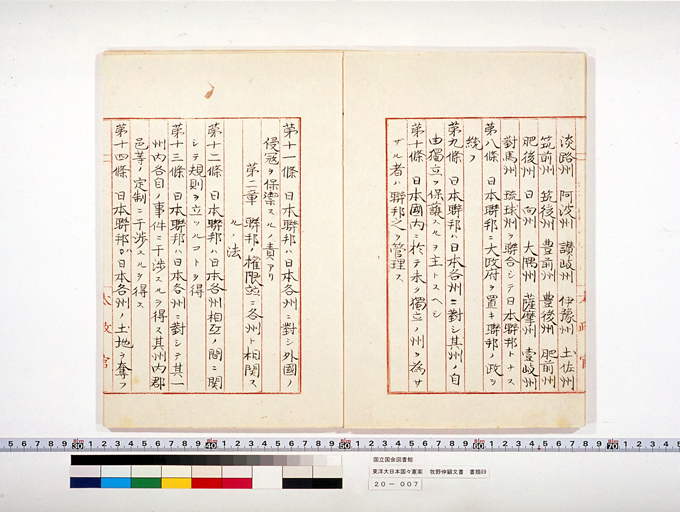 淡路州 阿波州 讃岐州 伊豫州 土佐州
筑前州 筑後州 豊前州 豊後州 肥前州
肥後州 日向州 大隅州 薩摩州 壹岐州
對馬州 琉球州ヲ聯合シテ日本聯邦トナス
第八條 日本聯邦ニ大政府ヲ置キ聯邦ノ政ヲ
統フ
第九條 日本聯邦ハ日本各州ニ對シ其州ノ自
由獨立ヲ保護スルヲ主トスヘシ
第十條 日本國內ニ於テ未タ獨立ノ州ヲ為サ
ザル者ハ聯邦之ヲ管理ス
第十一條 日本聯邦ハ日本各州ニ對シ外國ノ
侵寇ヲ保禦スルノ責アリ
第二章 聯邦ノ權限並ニ各州ト相関ス
ルノ法
第十二條 日本聯邦ハ日本各州相互ノ間ニ関
シテ規則ヲ立ツルコトヲ得
第十三條 日本聯邦ハ日本各州ニ對シテ其一
州內各自ノ事件ニ干渉スルヲ得ス其州內郡
邑等ノ定制ニ干渉スルヲ得ス
第十四條 日本聯邦ハ日本各州ノ土地ヲ奪フ
太政官
cm 30 1 2 3 4 5 6 7 8 9 40 1 2 3 4 5 6 7 8 9 50 1 2 3 4 5 6 7 8 9 60 1 2 3 4 5 6 7 8 9 70 1 2 3 4 5
国立国会図書館
東洋大日本国々憲案 牧野伸顕文書 書類69
20-007